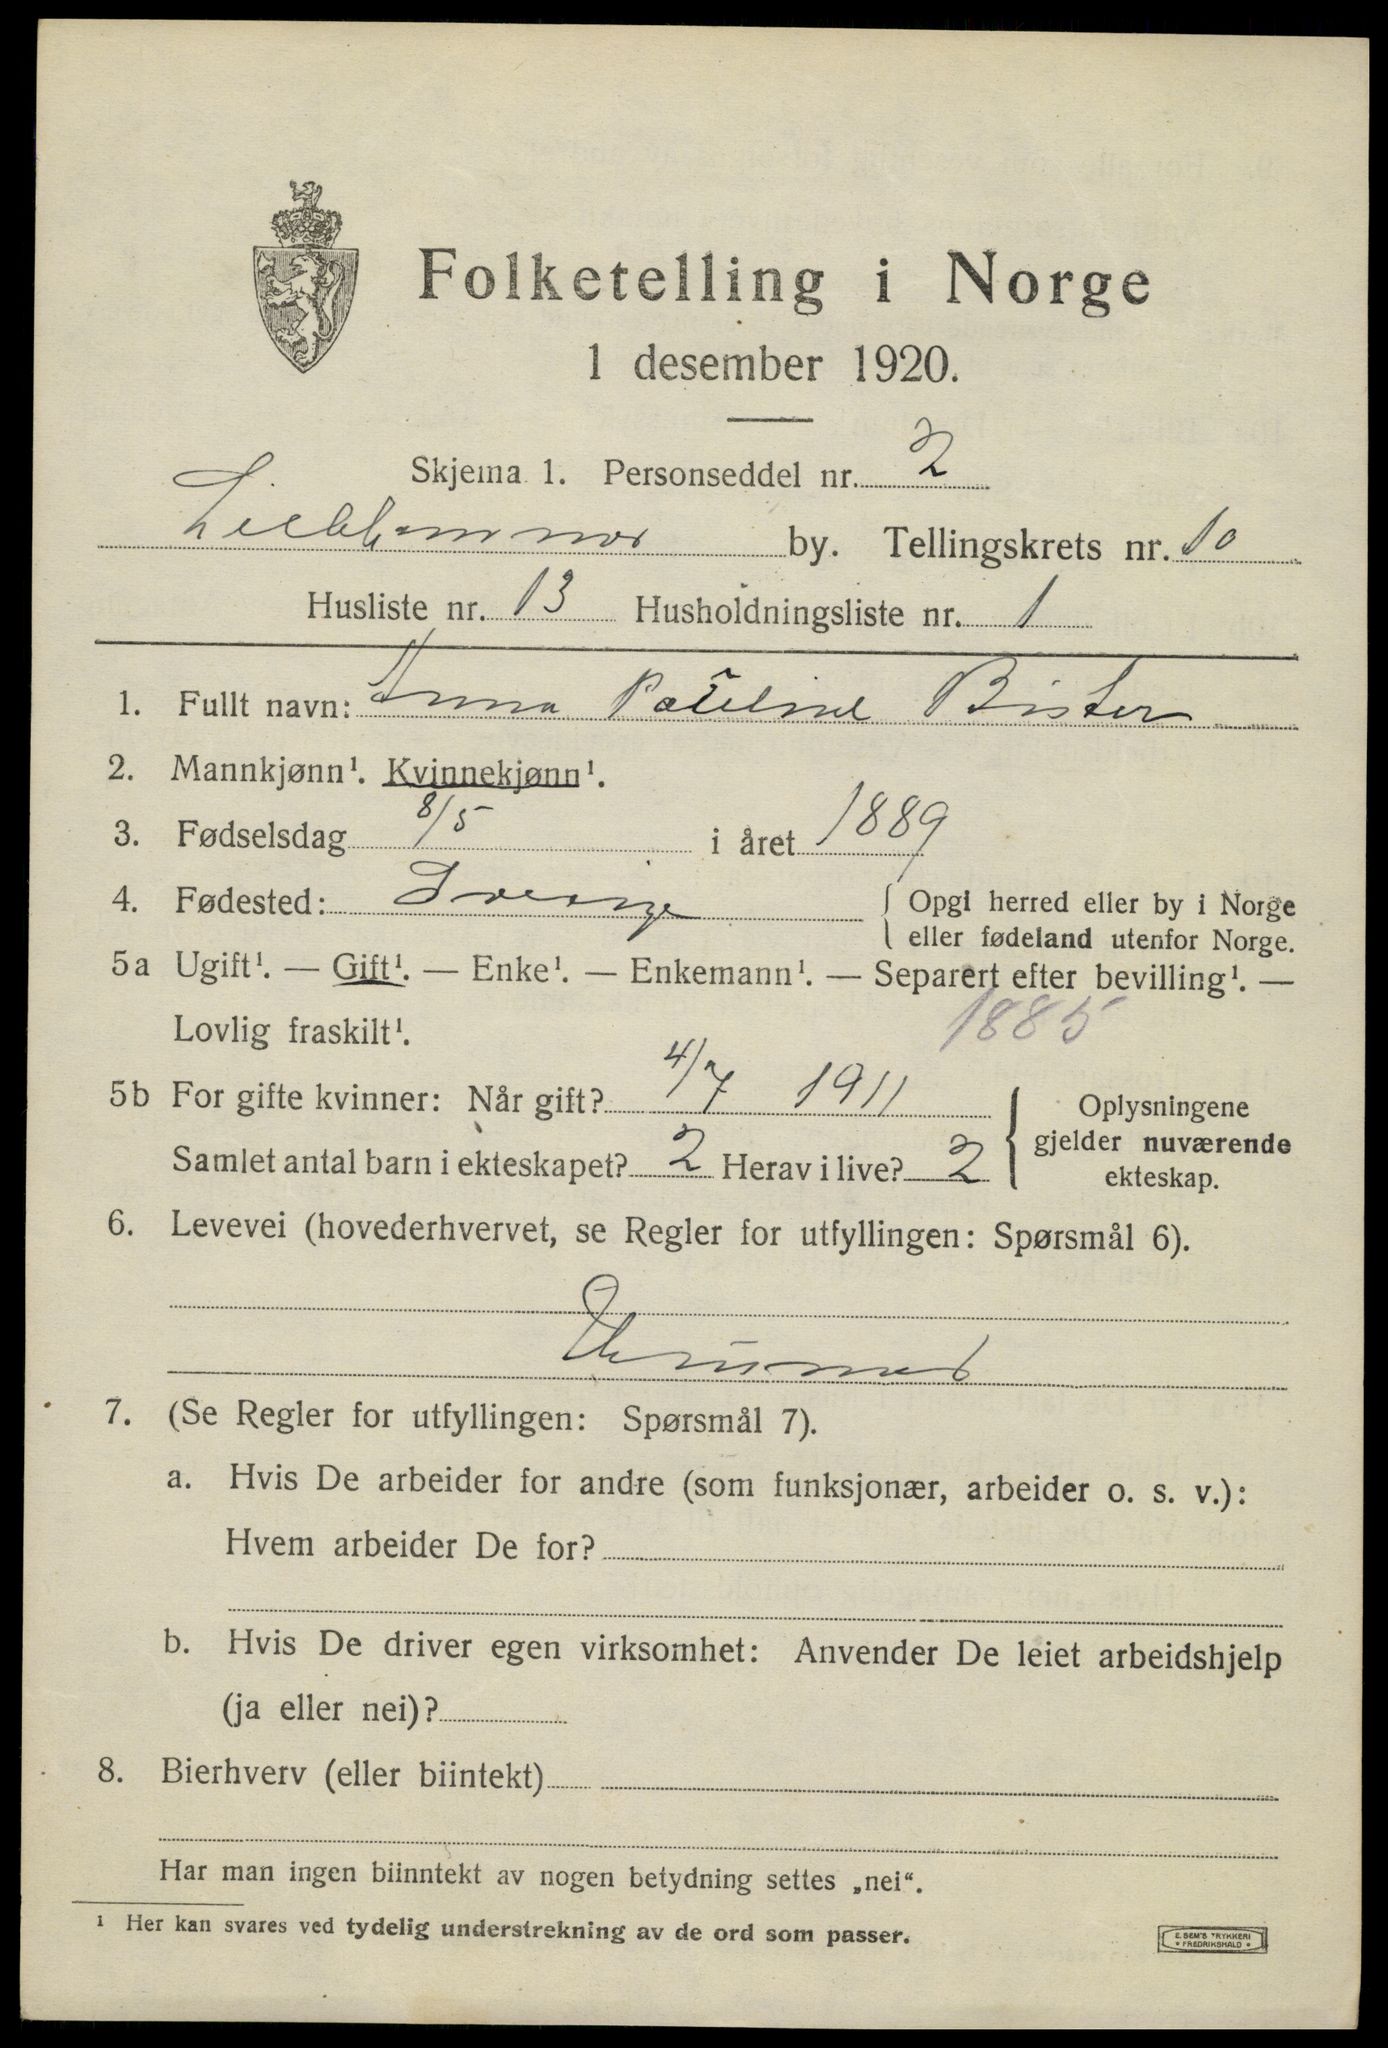 Folketelling i Norge
1 desember 1920.
Skjema 1. Personseddel nr. 2
Lillehammer by. Tellingskrets nr. 10
Husliste nr. 13 Husholdningsliste nr. 1
1. Fullt navn: Anna Pauline Bister
2. Mannkjønn¹. Kvinnekjønn¹.
3. Fødselsdag 8/5 i året 1889
4. Fødested: Sverige { Opgi herred eller by i Norge
eller fødeland utenfor Norge.
5a Ugift¹. — Gift¹. — Enke¹. — Enkemann¹. — Separert efter bevilling¹. —
Lovlig fraskilt¹. 1885
5b For gifte kvinner: Når gift? 4/7 1911
Samlet antal barn i ekteskapet? 2 Herav i live? 2
{ Oplysningene
gjelder nuværende
ekteskap.
6. Levevei (hovederhvervet, se Regler for utfyllingen: Spørsmål 6).
7. (Se Regler for utfyllingen: Spørsmål 7).
a. Hvis De arbeider for andre (som funksjonær, arbeider o. s. v.):
Hvem arbeider De for?
b. Hvis De driver egen virksomhet: Anvender De leiet arbeidshjelp
(ja eller nei)?
8. Bierhverv (eller biintekt)
Har man ingen biinntekt av nogen betydning settes „nei“.
¹ Her kan svares ved tydelig understrekning av de ord som passer.
E. SEM'S TRYKKERI
FREDRIKSHALD